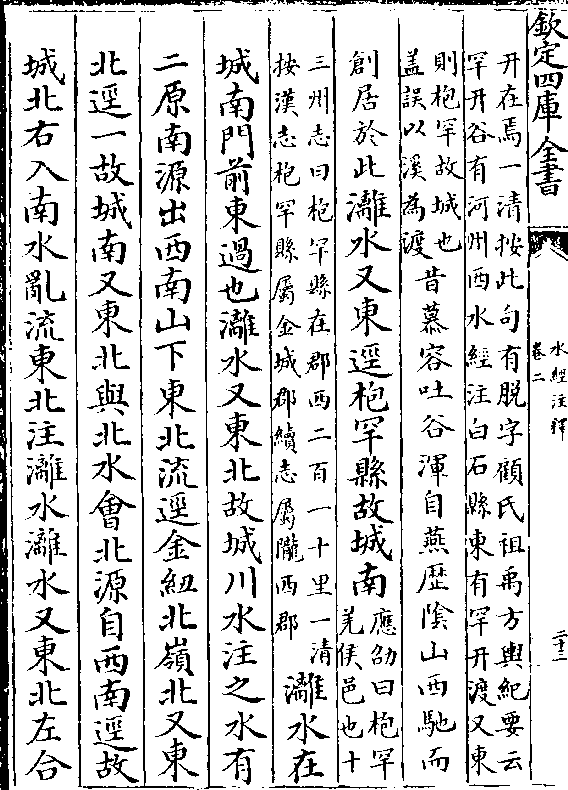 欽定四庫全書
水經注釋
卷二
二十三
幵在焉一清按此句有脫字顧氏祖禹方輿紀要云
罕幵谷有河州西水經注白石縣東有罕幵渡又東
則枹罕故城也
蓋誤以溪為渡昔慕容吐谷渾自燕歴隂山西馳而
創居於此灕水又東逕枹罕縣故城南應劭曰枹罕
羌侯邑也十
三州志曰枹罕縣在郡西二百一十里一清
按漢志枹罕縣屬金城郡續志屬隴西郡灕水在
城南門前東過也灕水又東北故城川水注之水有
二原南源出西南山下東北流逕金紐北嶺北又東
北逕一故城南又東北與北水會北源自西南逕故
城北右入南水亂流東北注灕水灕水又東北左合